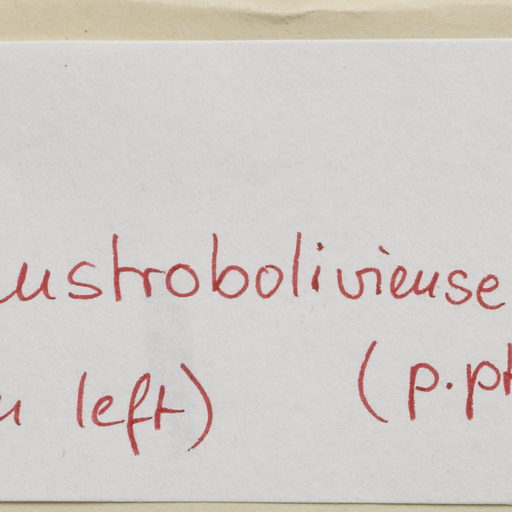 ustroboliviense
left) (p.pt